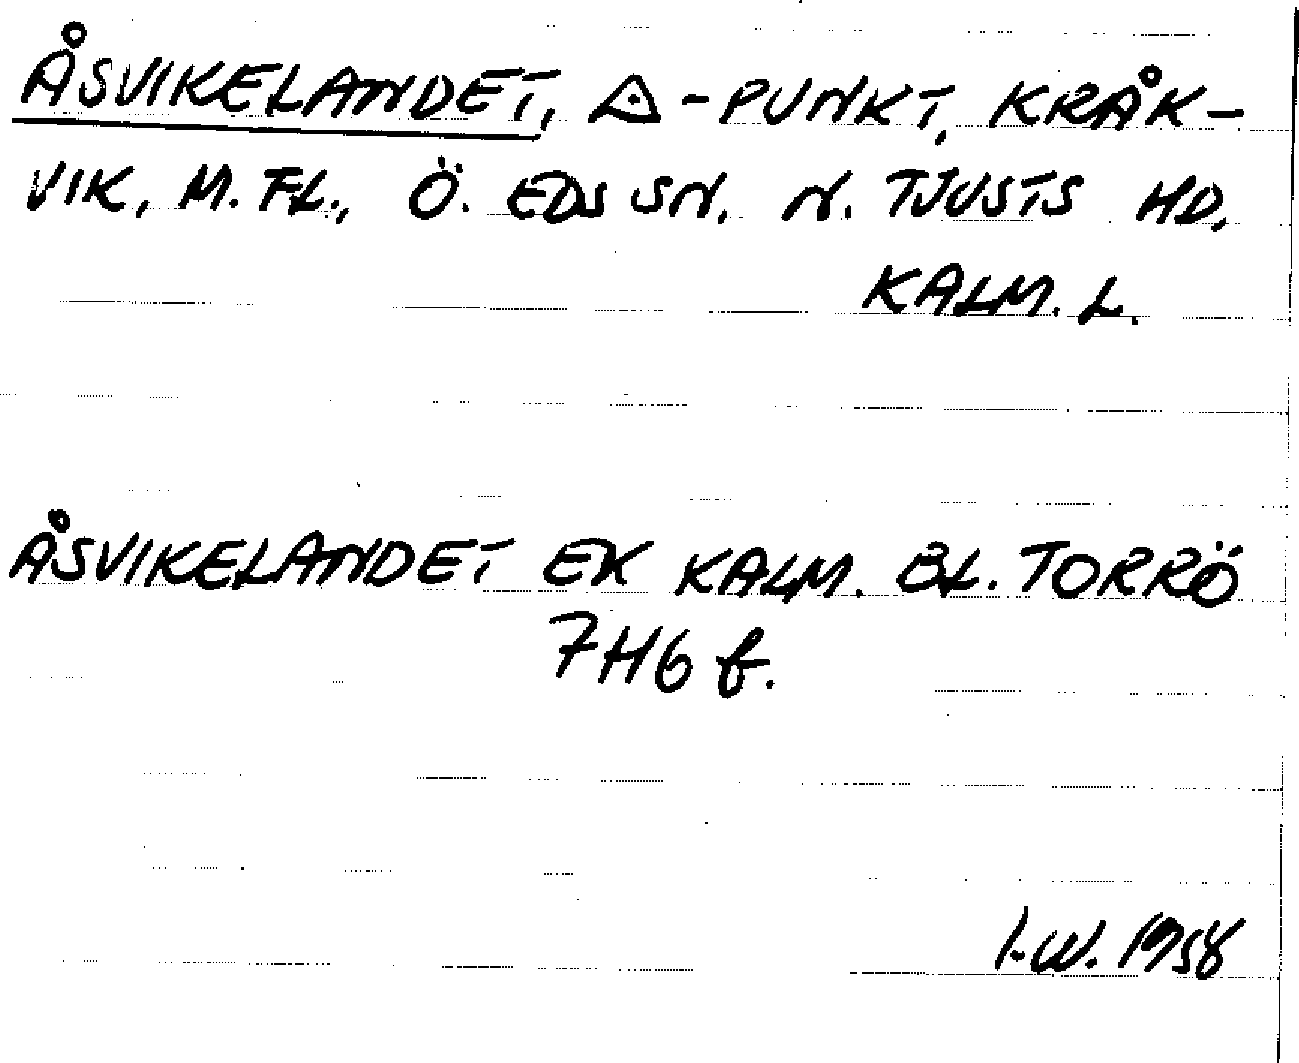 ÅSVIKELANDET, △-PUNKT, KRÅK-
VIK, M. FL., Ö. EDS SN. N. TJUSTS HD.
KALM. L.
ÅSVIKELANDET EK KALM. BL. TORRÖ
7H6f.
I.W. 1958